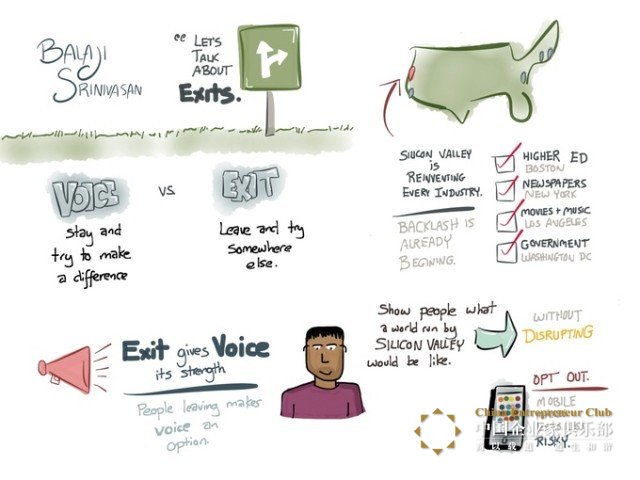 BALAJI
SRINIVASAN
“LET'S
TALK
ABOUT
Exits.
VOICE
vs.
EXIT
Stay and
try to make
a difference
Leave and try
Somewhere
else.
SILICON VALLEY
is
REINVENTING
EVERY INDUSTRY.
BACKLASH IS
ALREADY
BEGINING.
HIGHER ED
BOSTON
NEWSPAPERS
NEW YORK
MOVIES + MUSIC
LOS ANGELES
GOVERNMENT
WASHINGTON DC
Exit gives Voice
its strength
People leaving makes
voice an
Option.
Show people what
a world run by
SILICON VALLEY
would be like.
WITHOUT
DISRUPTING
OPT OUT.
MOBILE
RISKY.
China Entrepreneur Club
中国企业家俱乐部